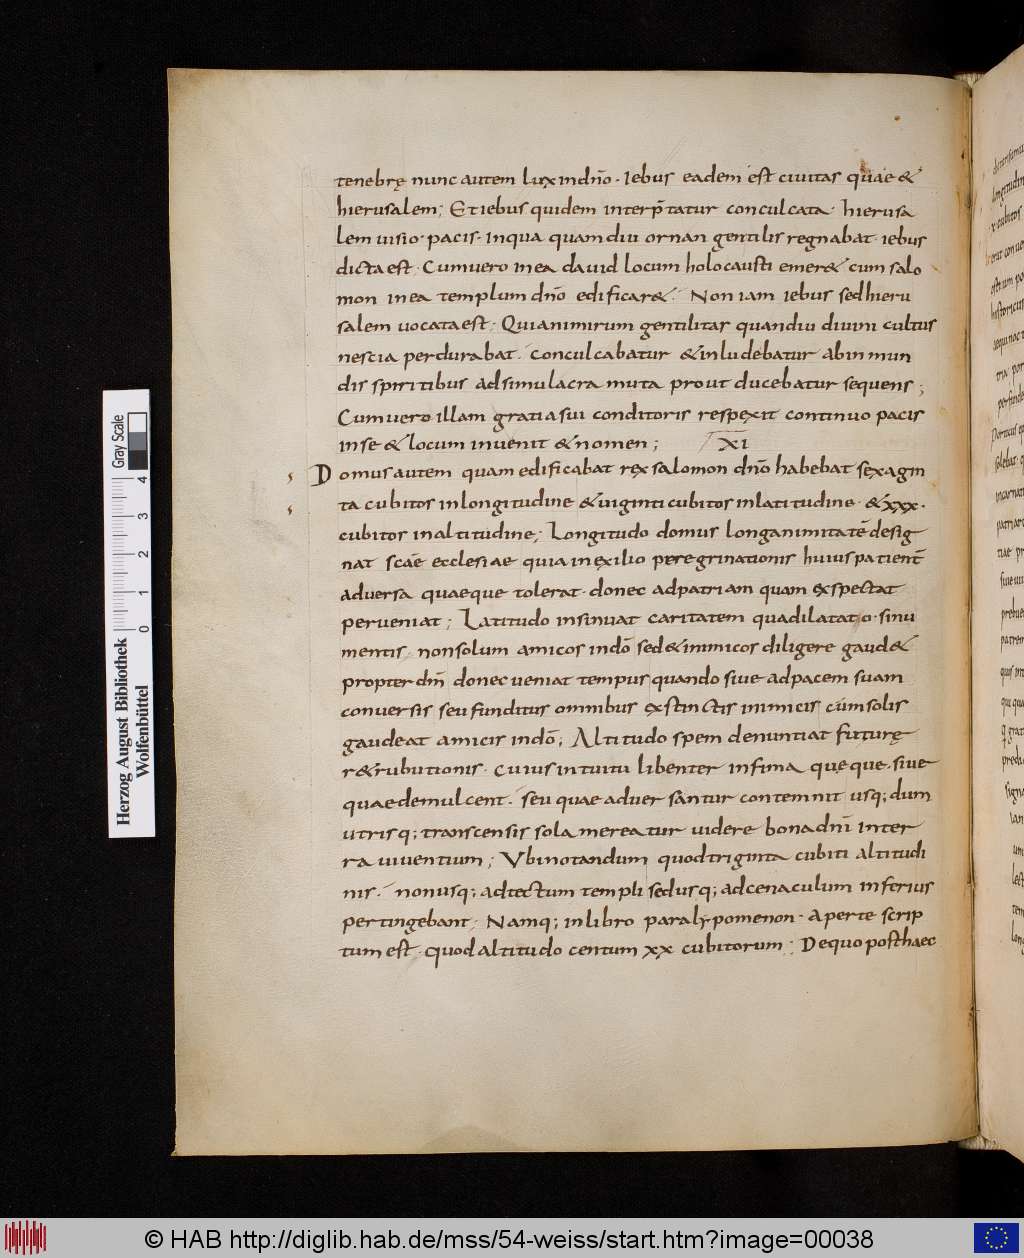 tenebrę nunc autem lux in dño · Iebus eadem est ciuitas quae &
hierusalem; Et iebus quidem interp̃tatur conculcata · hierusa
lem uisio · pacis · in qua quamdiu ornan gentilis regnabat · iebus
dicta est · Cum uero in ea dauid locum holocausti emer& cum salo
mon in ea templum dño edificar& · Non iam iebus sed hieru
salem uocata est; Quia nimirum gentilitas quandiu diuini cultus
nescia perdurabat · conculcabatur & inludebatur ab inmun
dis spiritibus ad simulacra muta prout ducebatur sequens;
Cum uero illam gratia sui conditoris respexit continuo pacis
in se & locum inuenit & nomen; XI
Domus autem quam edificabat rex salomon dño habebat sexagin
ta cubitos in longitudine & uiginti cubitos in latitudine · & xxx ·
cubitos in altitudine; Longitudo domus longanimitatē desig
nat scāe ecclesiae quia in exilio peregrinationis huius patient̄
aduersa quaeque tolerat · donec ad patriam quam exspectat
perueniat; Latitudo insinuat caritatem qua dilatato · sinu
mentis · non solum amicos in dō sed & inimicos diligere gaud&
propter dm̄ donec ueniat tempus quando siue ad pacem suam
conuersis seu funditus omnibus exstinctis inimicis cum solis
gaudeat amicis in dō; Altitudo spem denuntiat futurę
r&ributionis · cuius intuitu libenter infima quęque · siue
quae demulcent · seu quae aduersantur contemnit usq; dum
utrisq; transcensis sola mereatur uidere bona dn̄i in ter
ra uiuentium; Ubi notandum quod triginta cubiti altitudi
nis · non usq; ad tectum templi sed usq; ad cenaculum inferius
pertingebant; Namq; in libro paralypomenon · aperte scrip
tum est · quod altitudo centum xx cubitorum; De quo post haec
Herzog August Bibliothek
Wolfenbüttel
Gray Scale
0 1 2 3 4
© HAB http://diglib.hab.de/mss/54-weiss/start.htm?image=00038